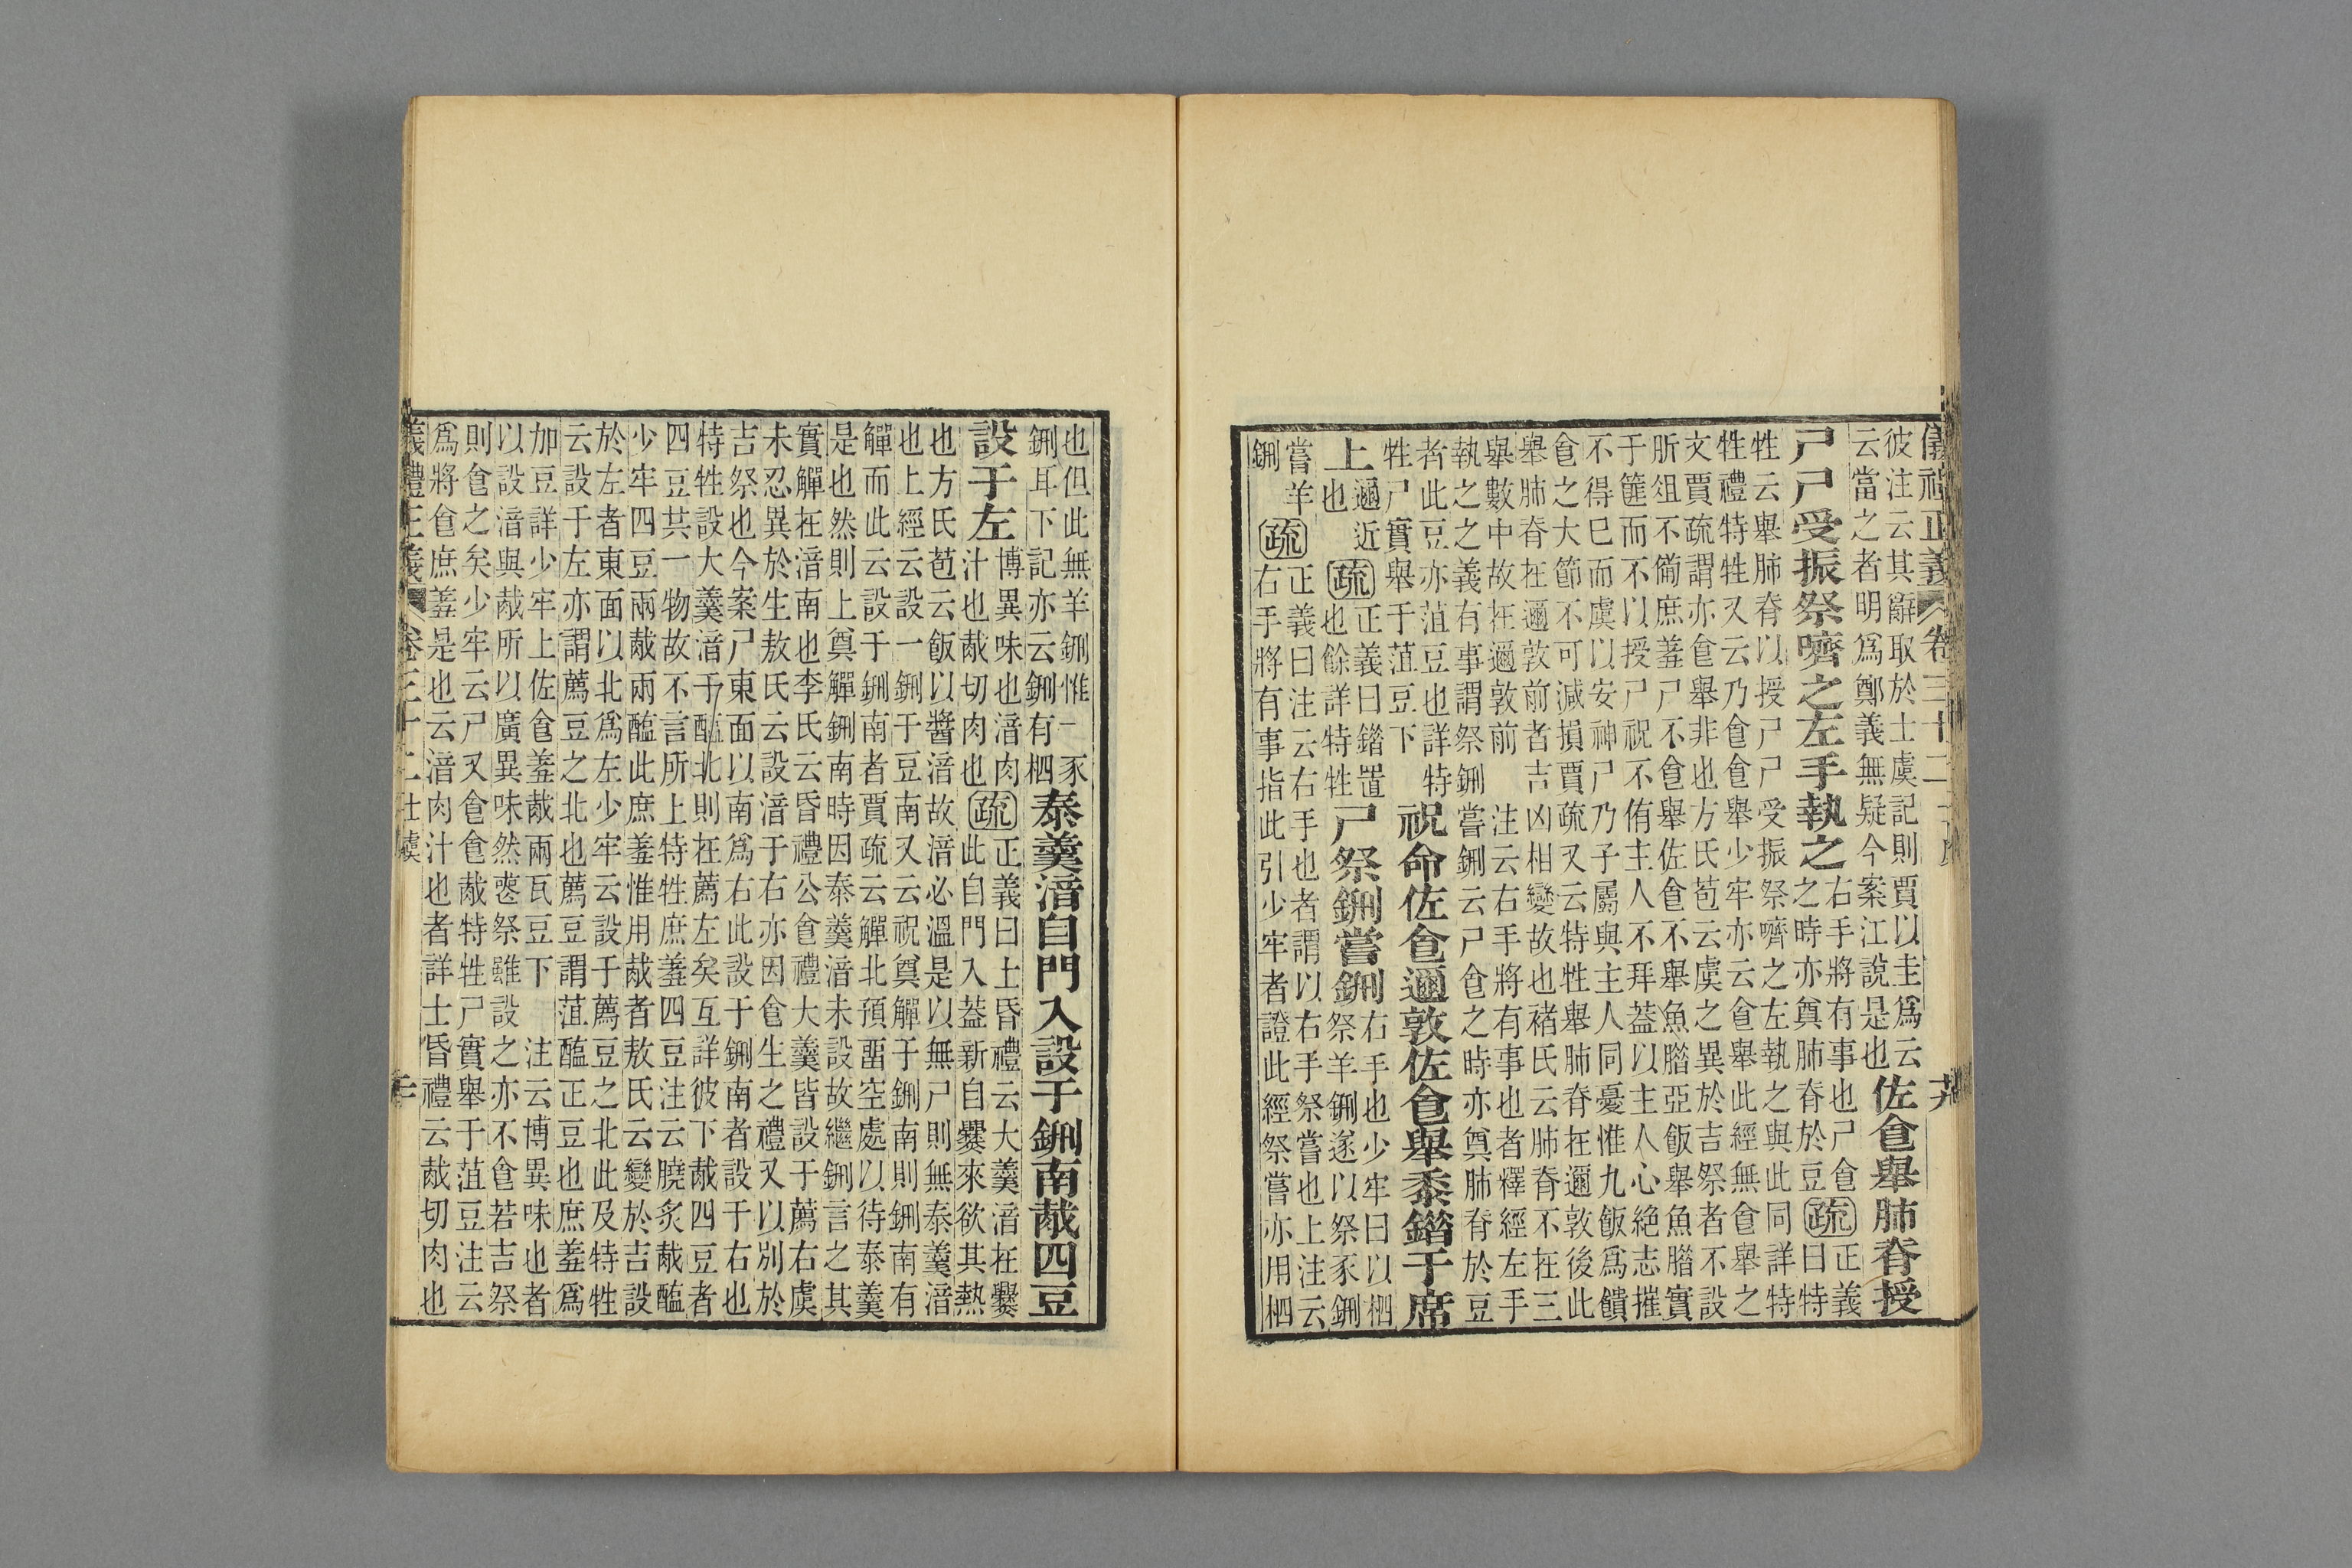 儀禮正義 卷三十二 士虞
彼注云其辭取於士虞記則賈以圭爲云
云當之者明爲鄭義無疑今案江說是也
佐食舉肺脊授
尸尸受振祭嚌之左手執之
右手將有事也尸食
之時亦奠肺脊於豆
疏
正義
曰特
牲云舉肺脊以授尸尸受振祭嚌之左執之與此同詳特
牲禮特牲又云乃食食舉少牢亦云食舉此經無食舉之
文賈疏謂亦食舉非也方氏苞云虞之異於吉祭者不設
肵俎不徧庶羞尸不食舉佐食不舉魚腊亞飯舉魚腊實
于篚而不以授尸祝不侑主人不拜蓋以主人心絕志摧
不得已而虞以安神尸乃子屬與主人同憂惟九飯爲饋
食之大節不可減損賈疏又云特牲舉肺脊在邇敦後此
舉肺脊在邇敦前者吉凶相變故也褚氏云肺脊不在三
舉數中故在邇敦前 注云右手將有事也者釋經左手
執之之義有事謂祭鉶嘗鉶云尸食之時亦奠肺脊於豆
者此豆亦菹豆也詳特
牲尸實舉于菹豆下
祝命佐食邇敦佐食舉黍錯于席
上
邇近
也
疏
正義曰錯置
也餘詳特牲
尸祭鉶嘗鉶
右手也少牢曰以柶
祭羊鉶遂以祭豕鉶
嘗羊
鉶
疏
正義曰注云右手也者謂以右手祭嘗也上注云
右手將有事指此引少牢者證此經祭嘗亦用柶
也但此無羊鉶惟一豕
鉶耳下記亦云鉶有柶
泰羹湆自門入設于鉶南胾四豆
設于左
博異味也湆肉
汁也胾切肉也
疏
正義曰士昏禮云大羹湆在爨
此自門入蓋新自爨來欲其熱
也方氏苞云飯以醬湆故湆必溫是以無尸則無泰羹湆
也上經云設一鉶于豆南又云祝奠觶于鉶南則鉶南有
觶而此云設于鉶南者賈疏云觶北預畱空處以待泰羹
是也然則上奠觶鉶南時因泰羹湆未設故繼鉶言之其
實觶在湆南也李氏云昏禮公食禮大羹皆設于薦右虞
未忍異於生敖氏云設湆于右亦因食生之禮又以別於
吉祭也今案尸東面以南爲右此設于鉶南者設于右也
特牲設大羹湆于醢北則在薦左矣互詳彼下胾四豆者
四豆共一物故不言所上特牲庶羞四豆注云膮炙胾醢
少牢四豆兩胾兩醢此庶羞惟用胾者敖氏云變於吉設
於左者東面以北爲左少牢云設于薦豆之北此及特牲
云設于左亦謂薦豆之北也薦豆謂菹醢正豆也庶羞爲
加豆詳少牢上佐食羞胾兩瓦豆下 注云博異味也者
以設湆與胾所以廣異味然喪祭雖設之亦不食若吉祭
則食之矣少牢云尸又食食胾特牲尸實舉于菹豆注云
爲將食庶羞是也云湆肉汁也者詳士昏禮云胾切肉也
儀禮正義 卷三十二 士虞